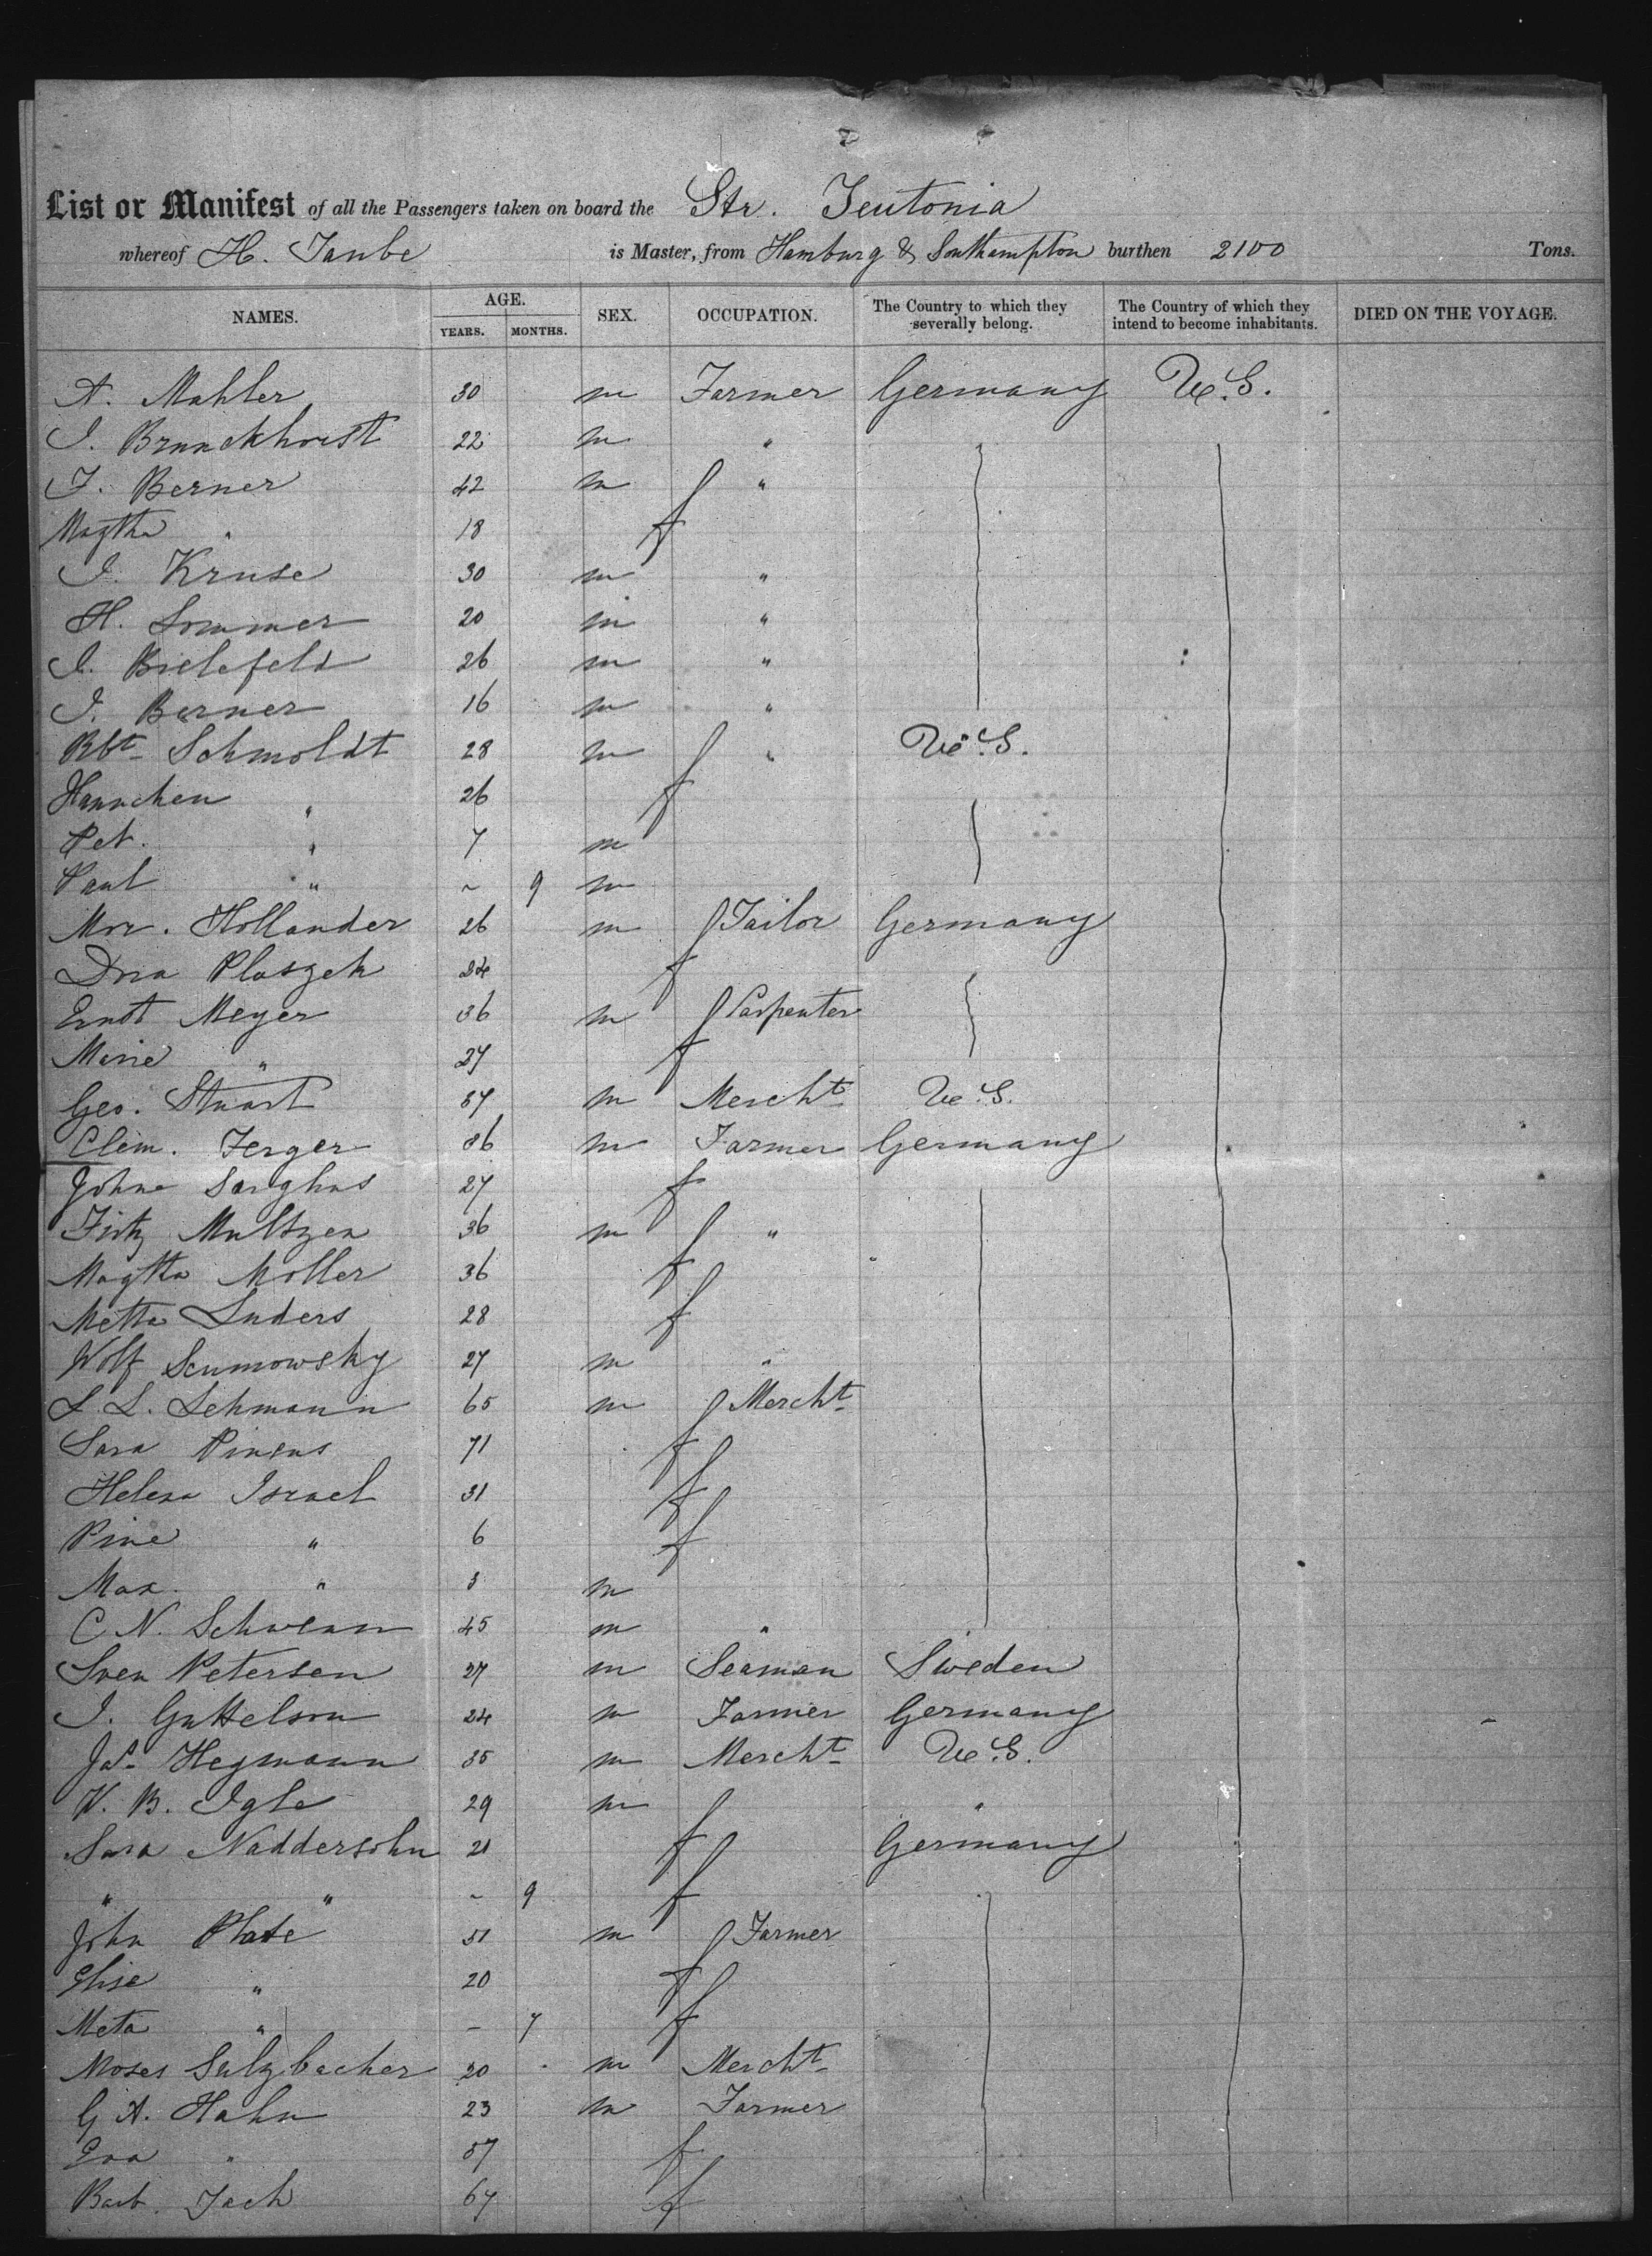 List or Manifest of all the Passengers taken on board the Str. Teutonia
whereof H. Taube is Master, from Hamburg & Southampton burthen 2100 Tons.
NAMES. AGE. YEARS. MONTHS. SEX. OCCUPATION. The Country to which they severally belong. The Country of which they intend to become inhabitants. DIED ON THE VOYAGE.
A. Mahler 30 m Farmer Germany U.S.
J. Brunckhorst 22 m "
J. Berner 42 m "
Magtha " 18 f
J. Kruse 30 m "
H. Sommer 20 m "
J. Bielefeld 26 m "
J. Berner 16 m "
Rbt Schmoldt 28 m " U.S.
Hannchen " 26 f
Pet. " 7 m
Paul " ~ 9 m
Mor. Hollander 26 m Tailor Germany
Dna Plaszek 24 f
Ernst Meyer 36 m Carpenter
Marie " 27 f
Geo. Stuart 37 m Mercht U.S.
Clem. Ferger 36 m Farmer Germany
Johne 27 f
Fritz Multzen 36 m "
Magtha Moller 36 f
Metta Luders 28 f
Wolf Scumowsky 27 m "
L. Lehmann 65 m Mercht
Sara Pincus 71 f
Helena Israel 31 f
Pine " 6 f
Max. " 3 m
C. N. Schwenn 45 m "
Sven Petersen 27 m Seaman Sweden
J. Guttelson 24 m Farmer Germany
Jas Hegmann 35 m Mercht U.S.
B. Igle 29 m "
Sara Naddersohn 21 f Germany
" " ~ 9 f
John Plate 31 m Farmer
Elise " 20 f
Meta " – 7 f
Moses Sulzbacher 20 m Mercht
G. A. Hahn 23 m Farmer
Eva " 57 f
Barb. Jach 67 f